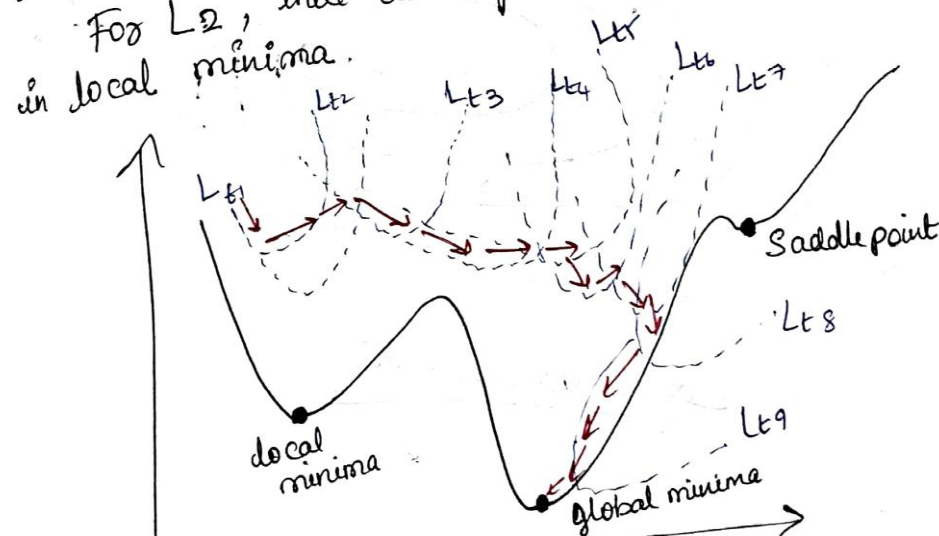 For L2,
in local minima.
Lt1
Lt2
Lt3
Lt4
Lt5
Lt6
Lt7
Saddle point
Lt8
local
minima
Lt9
global minima